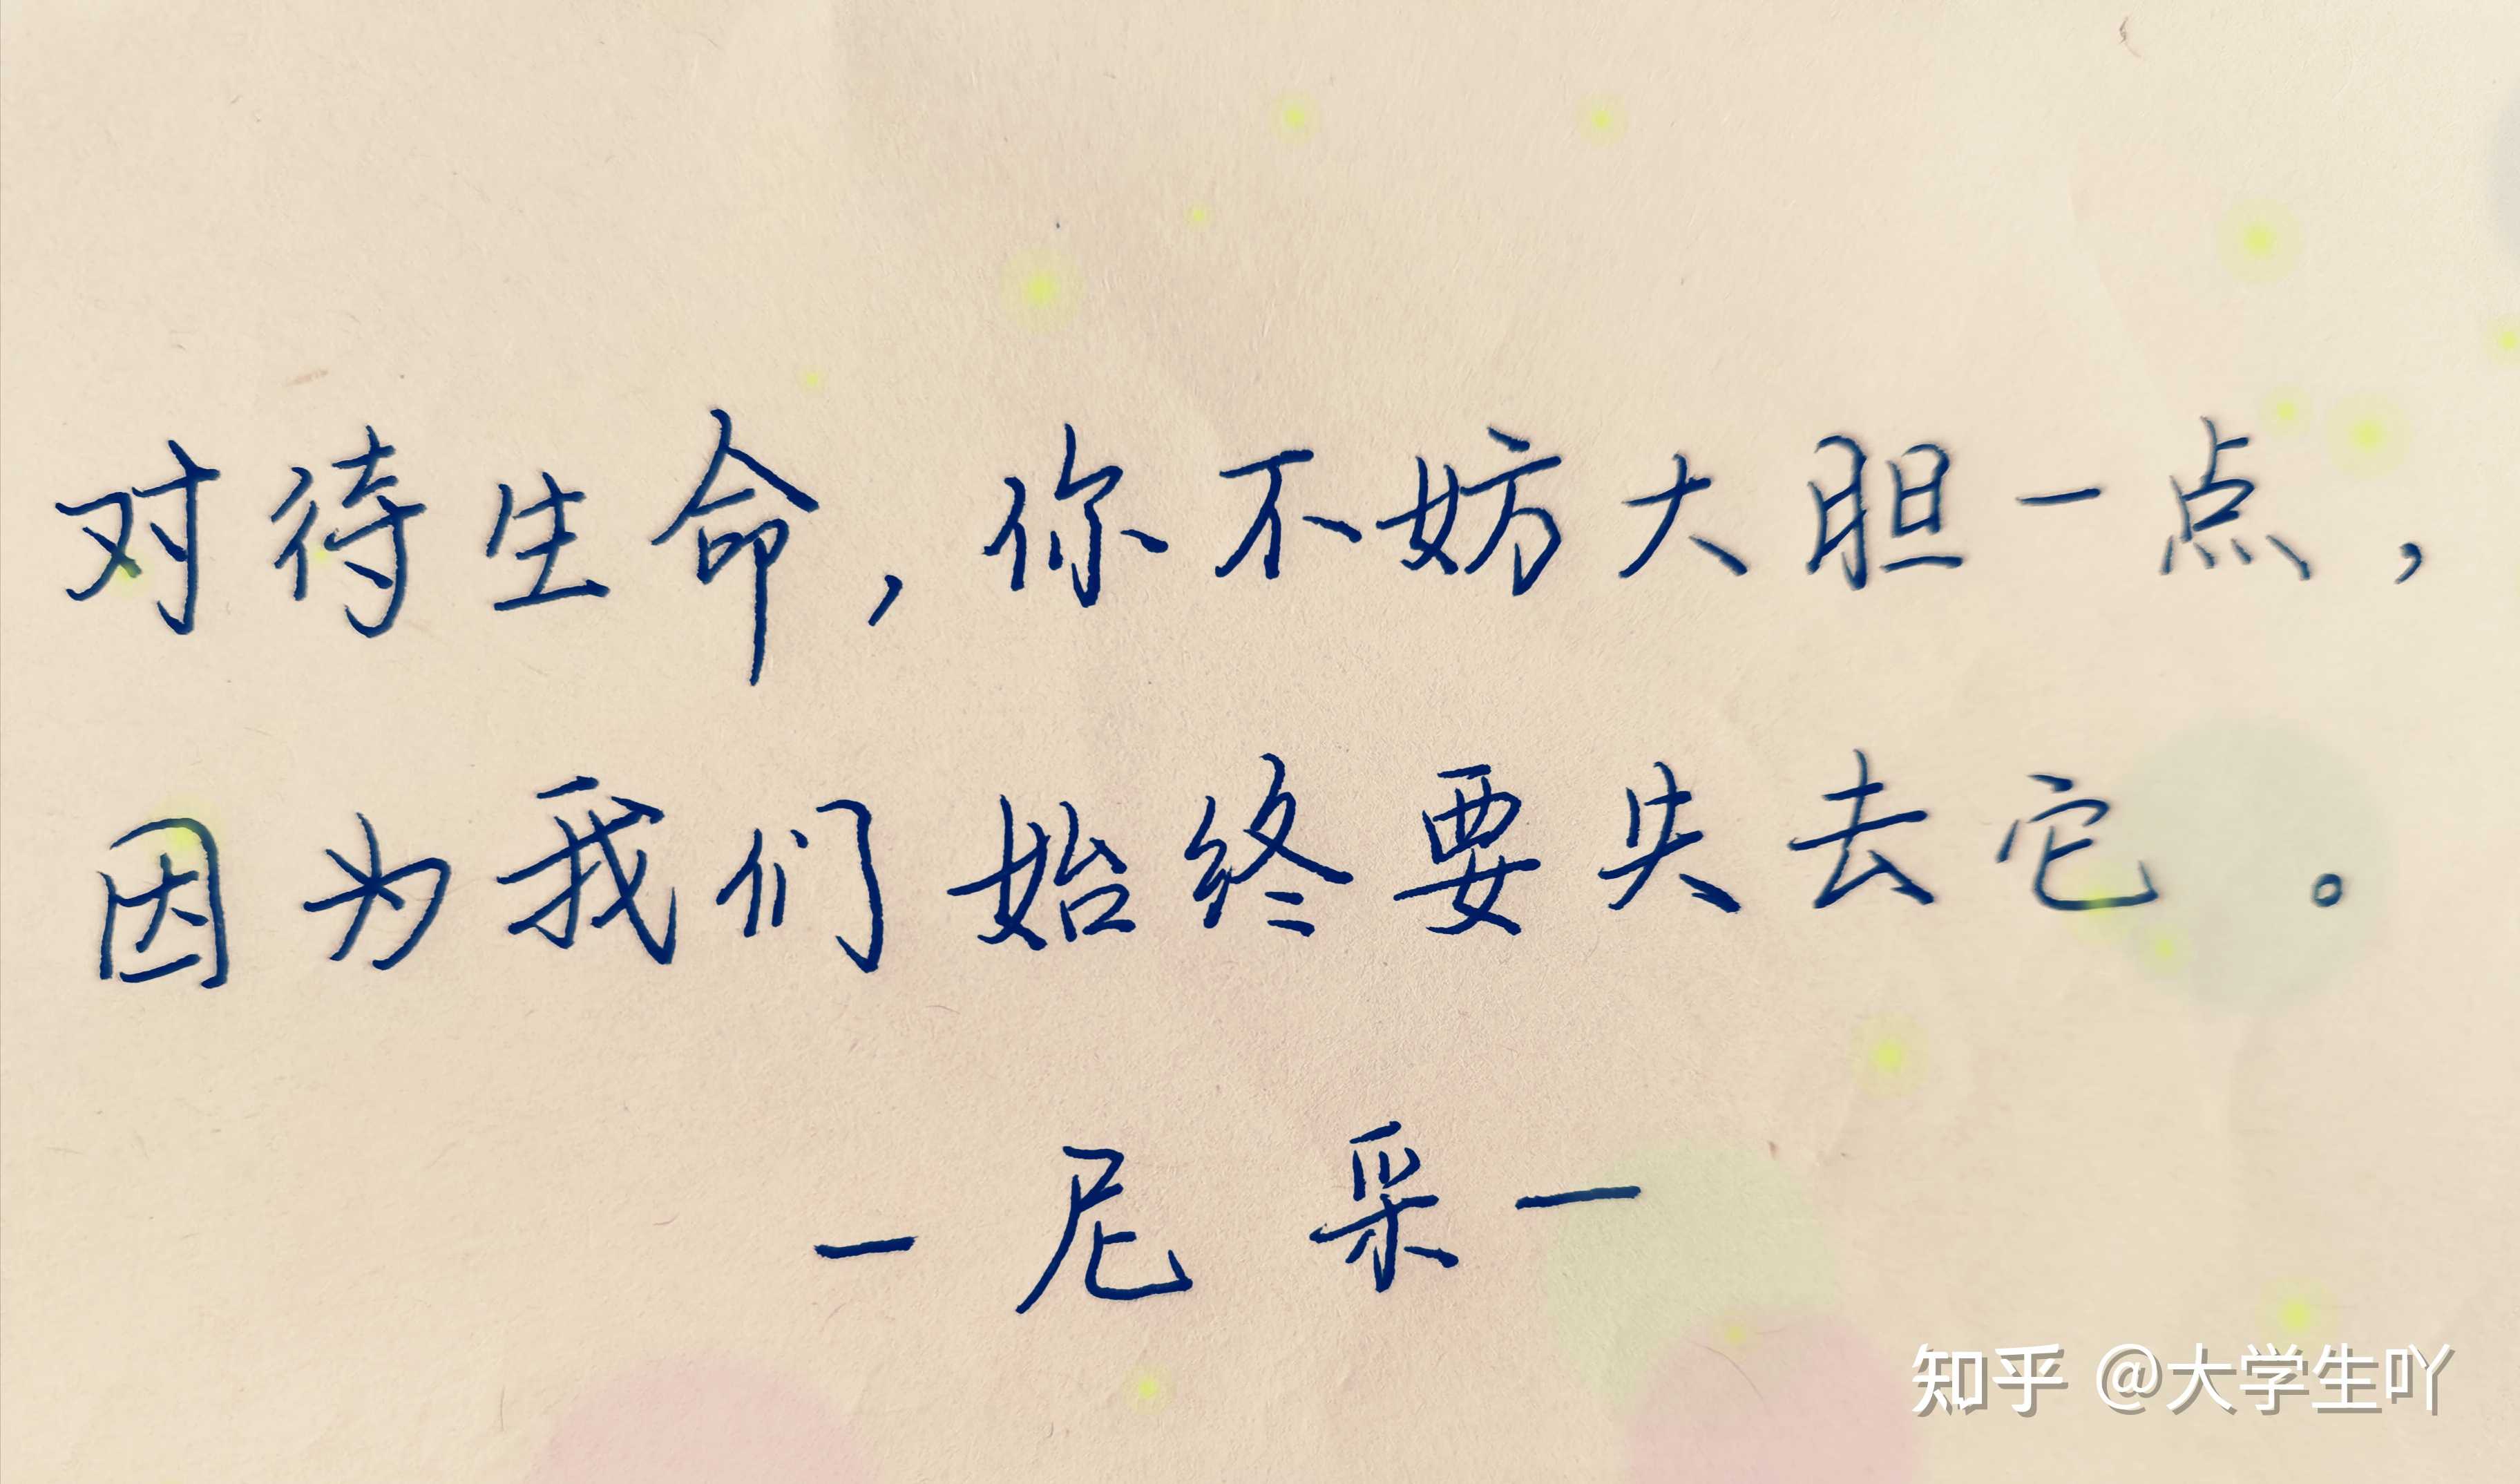 对待生命，你不妨大胆一点，
因为我们始终要失去它。
－尼采－
知乎 @大学生吖